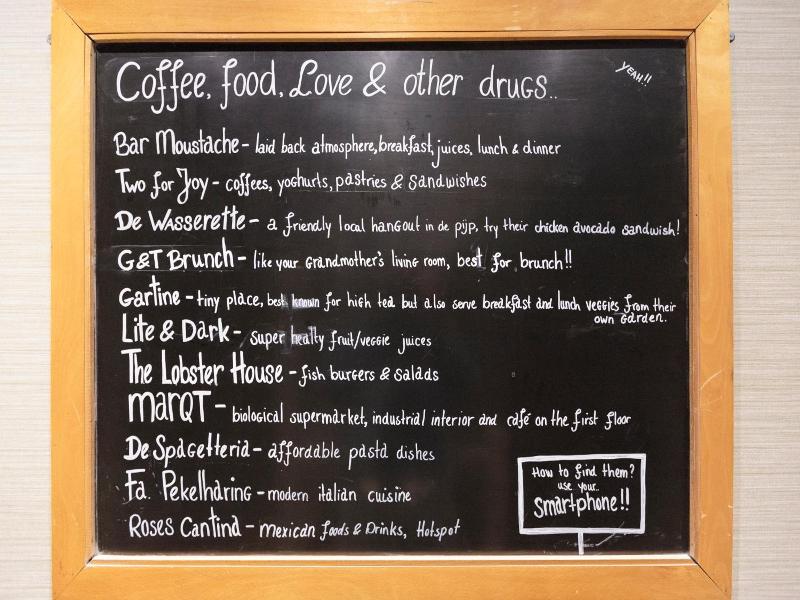 Coffee, food, Love & other drugs..
YEAH!!
Bar Moustache - laid back atmosphere, breakfast, juices, lunch & dinner
Two for Joy - coffees, yoghurts, pastries & sandwishes
De Wasserette - a friendly local hangout in de pijp, try their chicken avocado sandwish!
G&T Brunch - like your grandmother's living room, best for brunch!!
Gartine - tiny place, best known for high tea but also serve breakfast and lunch veggies from their
own garden.
Lite & Dark - super healty fruit/veggie juices
The Lobster House - fish burgers & salads
MARQT - biological supermarket, industrial interior and café on the first floor
De Spagetteria - affordable pasta dishes
Fa. Pekelharing - modern italian cuisine
Roses Cantina - mexican foods & Drinks, Hotspot
How to find them?
use your..
Smartphone!!